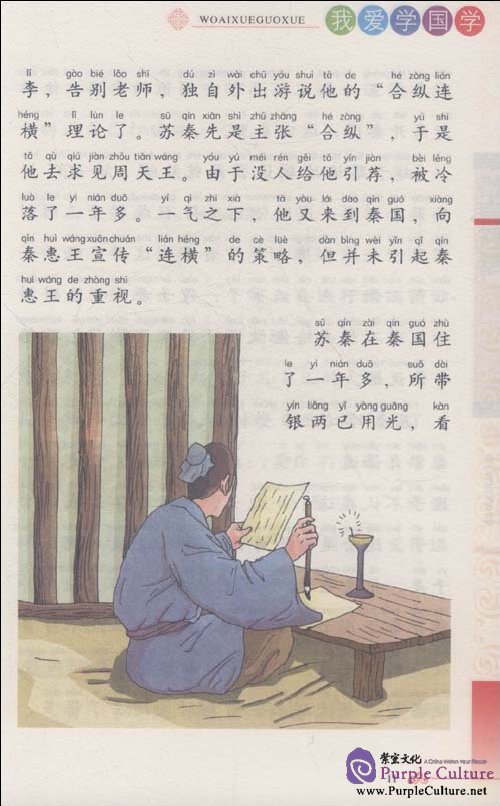 WOAIXUEGUOXUE
我爱学国学
lǐ gào bié lǎo shī dú zì wài chū yóu shuì tā de hé zòng lián
李，告别老师，独自外出游说他的“合纵连
héng lǐ lùn le sū qín xiān shì zhǔ zhāng hé zòng yú shì
横”理论了。苏秦先是主张“合纵”，于是
tā qù qiú jiàn zhōu tiān wáng yóu yú méi rén gěi tā yǐn jiàn bèi lěng
他去求见周天王。由于没人给他引荐，被冷
luò le yì nián duō yí qì zhī xià tā yòu lái dào qín guó xiàng
落了一年多。一气之下，他又来到秦国，向
qín huì wáng xuān chuán lián héng de cè lüè dàn bìng wèi yǐn qǐ qín
秦惠王宣传“连横”的策略，但并未引起秦
huì wáng de zhòng shì
惠王的重视。
sū qín zài qín guó zhù
苏秦在秦国住
le yì nián duō suǒ dài
了一年多，所带
yín liǎng yǐ yòng guāng kàn
银两已用光，看
紫宣文化 A China Waiten Your Reach
Purple Culture
www.PurpleCulture.net